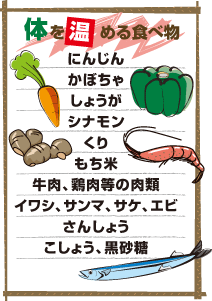 体を温める食べ物
にんじん
かぼちゃ
しょうが
シナモン
くり
もち米
牛肉、鶏肉等の肉類
イワシ、サンマ、サケ、エビ
さんしょう
こしょう、黒砂糖